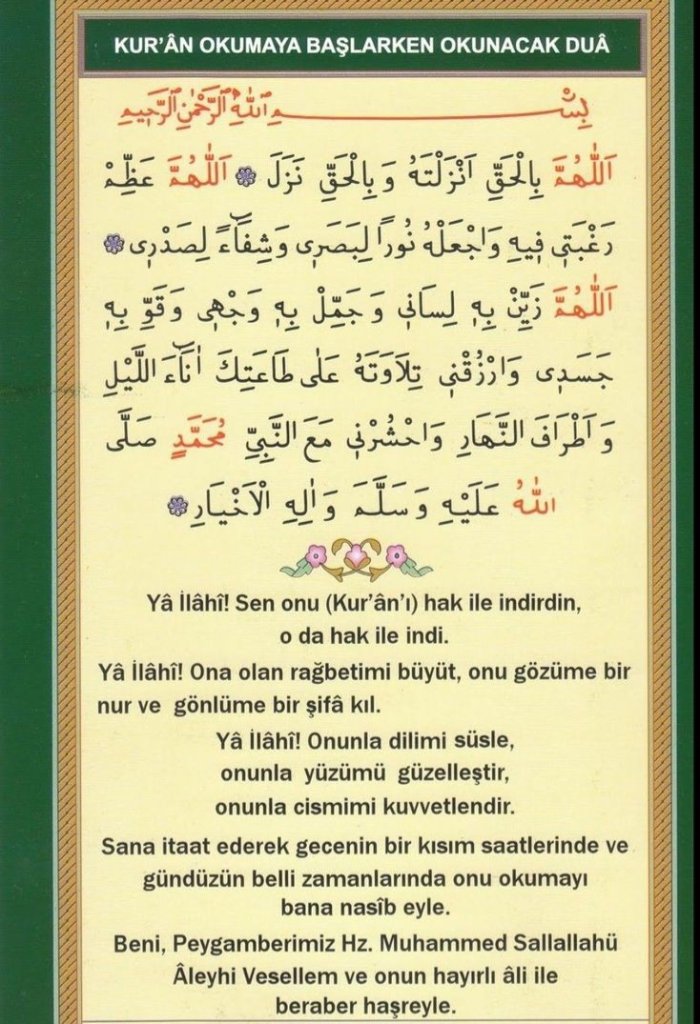 KUR’ÂN OKUMAYA BAŞLARKEN OKUNACAK DUÂ
بِسْمِ اللّٰهِ الرَّحْمٰنِ الرَّح۪يمِ
اَللّٰهُمَّ بِالْحَقِّ اَنْزَلْتَهُ وَبِالْحَقِّ نَزَلَ ۞ اَللّٰهُمَّ عَظِّمْ
رَغْبَت۪ى ف۪يهِ وَاجْعَلْهُ نُورًا لِبَصَر۪ى وَشِفَٓاءً لِصَدْر۪ى ۞
اَللّٰهُمَّ زَيِّنْ بِه۪ لِسَان۪ى وَجَمِّلْ بِه۪ وَجْه۪ى وَقَوِّ بِه۪
جَسَد۪ى وَارْزُقْن۪ى تِلَاوَتَهُ عَلٰى طَاعَتِكَ اٰنَٓاءَ اللَّيْلِ
وَاَطْرَافَ النَّهَارِ وَاحْشُرْن۪ى مَعَ النَّبِىِّ مُحَمَّدٍ صَلَّى
اللّٰهُ عَلَيْهِ وَسَلَّمَ وَاٰلِهِ الْاَخْيَارِ ۞
Yâ İlâhî! Sen onu (Kur’ân’ı) hak ile indirdin,
o da hak ile indi.
Yâ İlâhî! Ona olan rağbetimi büyüt, onu gözüme bir
nur ve gönlüme bir şifâ kıl.
Yâ İlâhî! Onunla dilimi süsle,
onunla yüzümü güzelleştir,
onunla cismimi kuvvetlendir.
Sana itaat ederek gecenin bir kısım saatlerinde ve
gündüzün belli zamanlarında onu okumayı
bana nasîb eyle.
Beni, Peygamberimiz Hz. Muhammed Sallallahü
Âleyhi Vesellem ve onun hayırlı âli ile
beraber haşreyle.